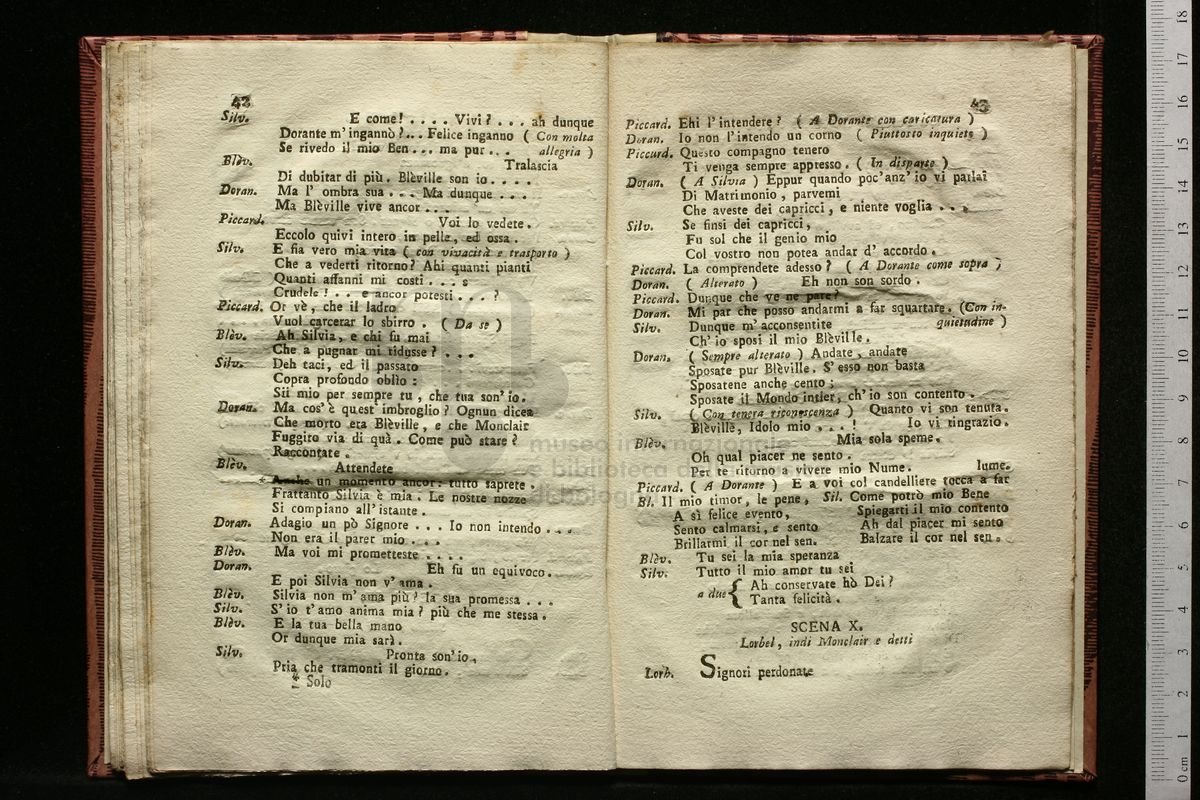 42
Silv. E come! .... Vivi? ... ah dunque
Dorante m'ingannò?... Felice inganno ( Con molta
Se rivedo il mio Ben ... ma pur ... allegria )
Blèv. Tralascia
Di dubitar di più. Blèville son io ....
Doran. Ma l' ombra sua ... Ma dunque ...
Ma Blèville vive ancor ...
Piccard. Voi lo vedete.
Eccolo quivi intero in pelle, ed ossa.
Silv. E fia vero mia vita ( con vivacità e trasporto )
Che a vederti ritorno? Ahi quanti pianti
Quanti affanni mi costi ...
Crudele! .. e ancor potesti ... ?
Piccard. Or vè, che il ladro
Vuol carcerar lo sbirro . ( Da se )
Blèv. Ah Silvia, e chi fu mai
Che a pugnar mi ridusse? ...
Silv. Deh taci, ed il passato
Copra profondo oblìo :
Sii mio per sempre tu, che tua son'io.
Doran. Ma cos'è quest'imbroglio? Ognun dicea
Che morto era Blèville, e che Monclair
Fuggito via di quà. Come può stare?
Raccontate.
Blèv. Attendete
* Anche un momento ancor: tutto saprete.
Frattanto Silvia è mia. Le nostre nozze
Si compiano all'istante.
Doran. Adagio un pò Signore ... Io non intendo ...
Non era il parer mio ...
Blèv. Ma voi mi prometteste ....
Doran. Eh fu un equivoco.
E poi Silvia non v'ama.
Blèv. Silvia non m'ama più? la sua promessa ...
Silv. S'io t'amo anima mia? più che me stessa.
Blèv. E la tua bella mano
Or dunque mia sarà.
Silv. Pronta son'io,
Pria che tramonti il giorno.
* Solo
43
Piccard. Ehi l'intendere? ( A Dorante con caricatura )
Doran. Io non l'intendo un corno ( Piuttosto inquieto )
Piccard. Questo compagno tenero
Ti venga sempre appresso. ( In disparte )
Doran. ( A Silvia ) Eppur quando poc'anz'io vi parlai
Di Matrimonio, parvemi
Che aveste dei capricci, e niente voglia ...
Silv. Se finsi dei capricci,
Fu sol che il genio mio
Col vostro non potea andar d' accordo.
Piccard. La comprendete adesso? ( A Dorante come sopra )
Doran. ( Alterato ) Eh non son sordo.
Piccard. Dunque che ve ne pare?
Doran. Mi par che posso andarmi a far squartare. (Con in-
Silv. Dunque m'acconsentite quietudine )
Ch'io sposi il mio Blèville.
Doran. ( Sempre alterato ) Andate, andate
Sposate pur Blèville. S'esso non basta
Sposatene anche cento;
Sposate il Mondo intier, ch'io son contento.
Silv. ( Con tenera riconoscenza ) Quanto vi son tenuta.
Blèville, Idolo mio ...! Io vi ringrazio.
Blèv. Mia sola speme.
Oh qual piacer ne sento.
Per te ritorno a vivere mio Nume. lume.
Piccard. ( A Dorante ) E a voi col candelliere tocca a far
Bl. Il mio timor, le pene, Sil. Come potrò mio Bene
A sì felice evento, Spiegarti il mio contento
Sento calmarsi, e sento Ah dal piacer mi sento
Brillarmi il cor nel sen. Balzare il cor nel sen.
Blèv. Tu sei la mia speranza
Silv. Tutto il mio amor tu sei
a due { Ah conservate hò Dei?
Tanta felicità.
SCENA X.
Lorbel, indi Monclair e detti
Lorb. Signori perdonate
museo internazionale
e biblioteca della musica
di bologna